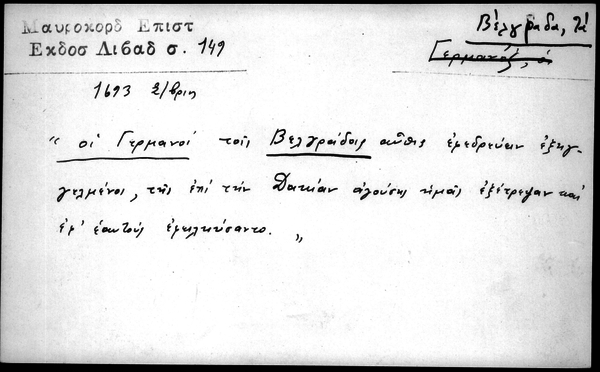 Μαυροκορδ Επιστ
Εκδοσ Λιβαδ σ. 149
Βέλγραδα, τὰ
Γερμανός, ὁ
1693 8/βριη
“ οἱ Γερμανοί τοῖς Βελγράδοις αὖθις ἐφεδρεύειν ἐξηγ-
γελμένοι, τῆς ἐπὶ τὴν Δακίαν ἀγούσης ἡμᾶς ἐξέτρεψαν καὶ
ἐφ' ἑαυτοὺς ἐφειλκύσαντο. „